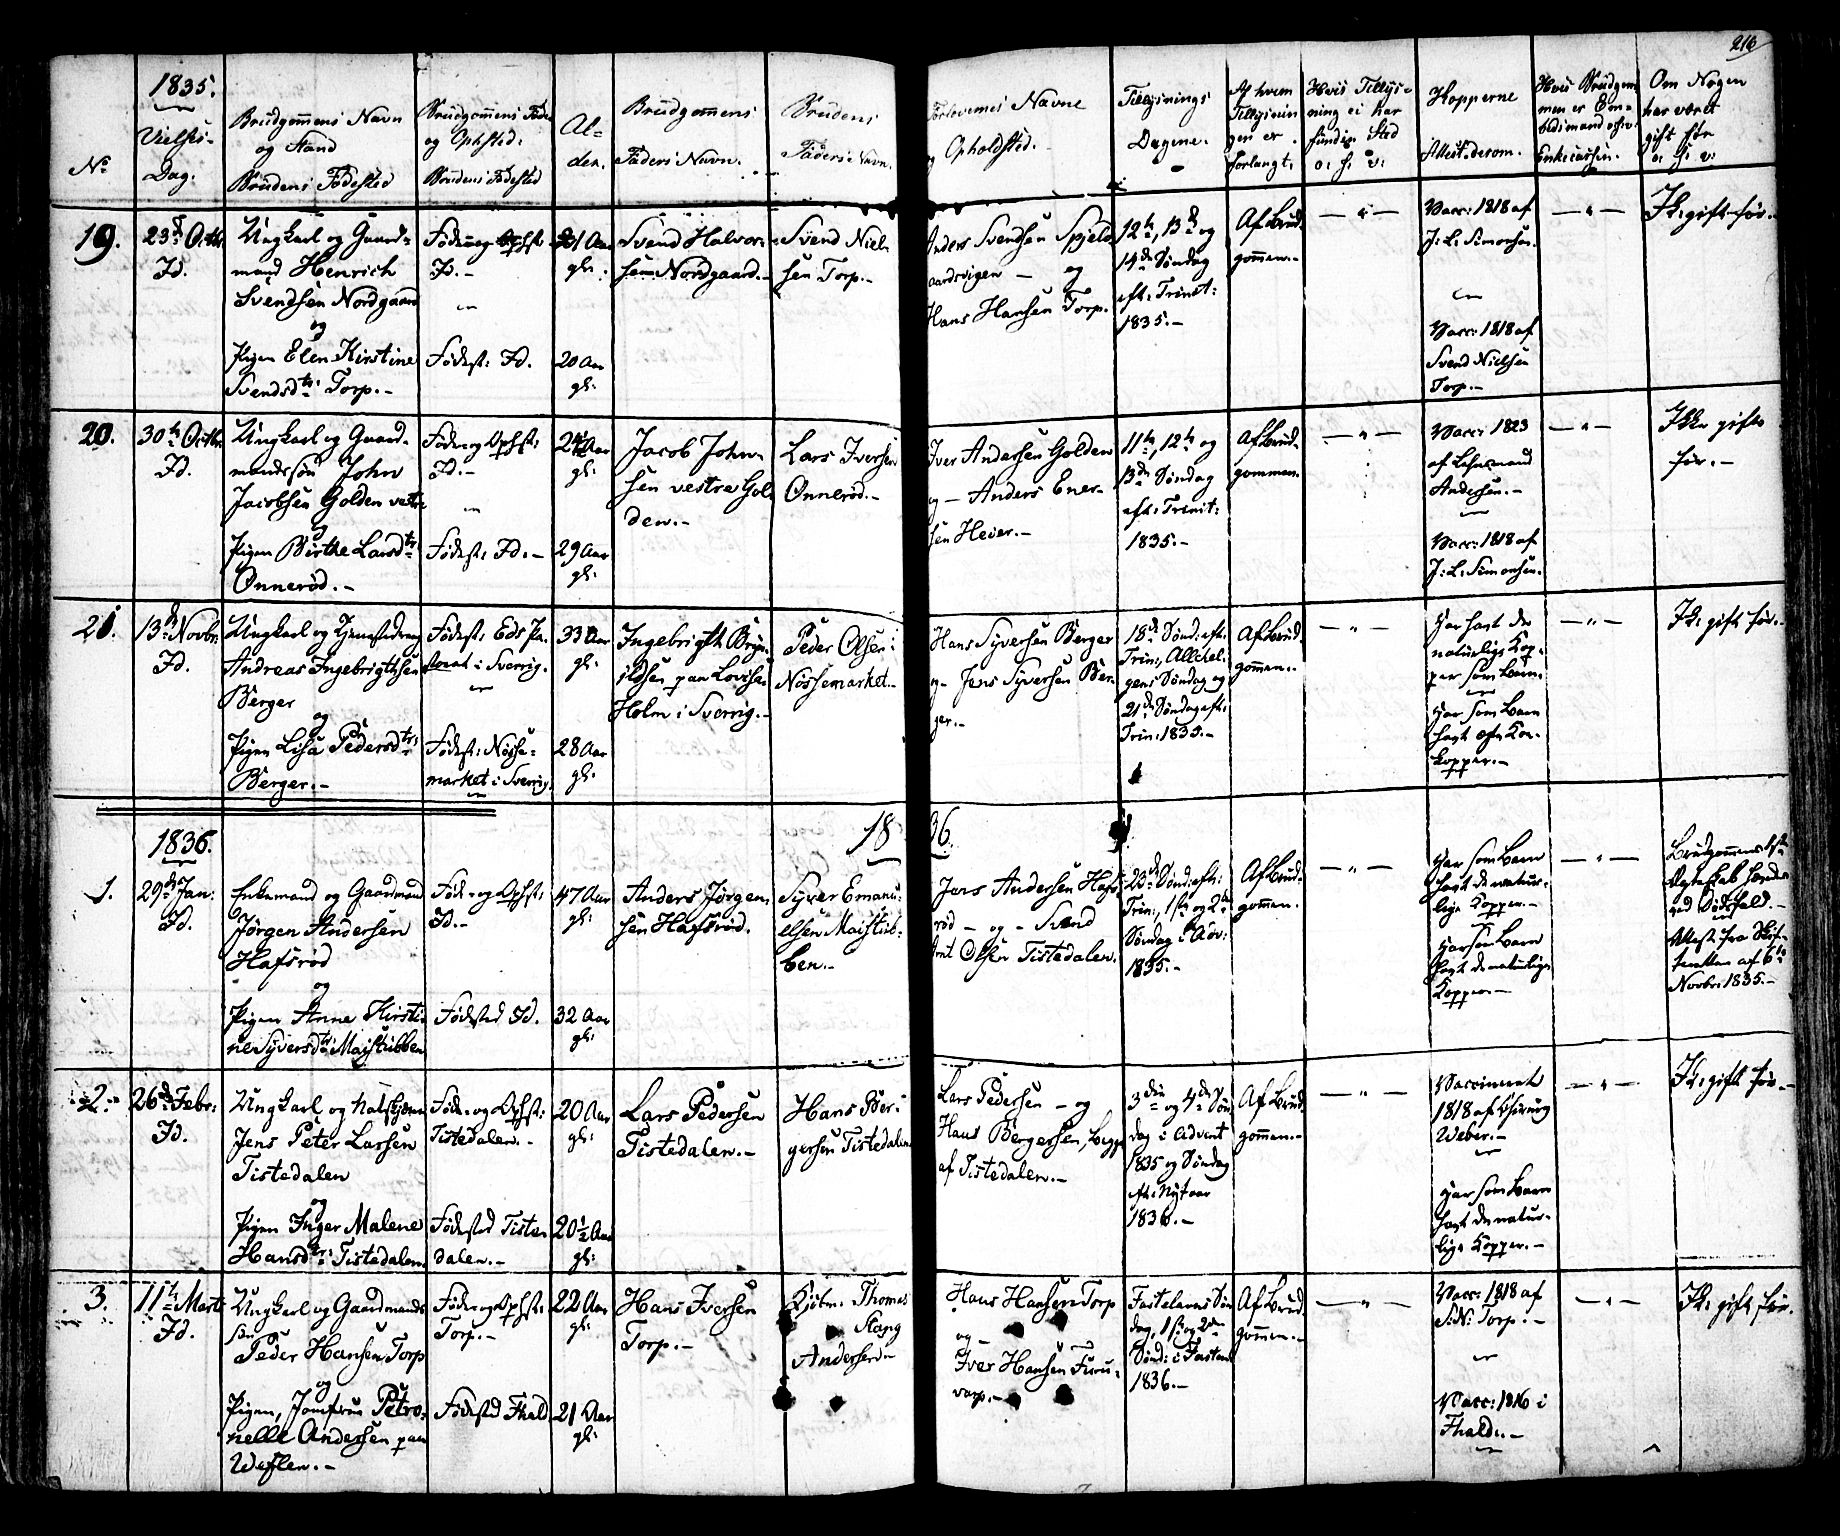 216
1835.
No
Vielses-
Dag:
Brudgommens Navn
og Stand
Brudens Fødested
Brudgommens Føde
og Ophsted:
Brudens Fødested
Al-
der.
Brudgommens
Faders Navn.
Brudens
Faders Navn.
Forlovernes Navne
og Opholdsted.
Tillysnings
Dagene.
Af hvem
Tillysnin
gen er
forlangt:
Hvis Tillys-
ning ei har
fundig Sted
o: s: v:
Kopperne
Attest derom.
Hvis Brudgom
men er Em-
bedsmand
Enkecassen.
Om Nogen
har været
gift før
o: s: v:
19.
23d Octbr
Id.
Ungkarl og Gaard-
mand Henrich
Svendsen Nordgaard
og
Pigen Elen Kirstine
Svendsdtr: Torp.-
Føde og Ophst:
Id.-
Fødest: Id.
31 Aar
gl:
20 Aar
gl:
Svend Halvor-
sen Nordgaard.-
Svend Niel-
sen Torp.-
Anders Svendsen Spjels
aardsvigen - og
Hans Hansen Torp.
12te, 13de og
14de Søndag
eft: Trinit:
1835.-
Af Brud-
gommen.-
- " -
Vacc: 1818 af
J: L: Simonsen.
Vacc: 1818 af
Svend Nielsen
Torp.-
- " -
Ik: gift før.-
20.
30te Octbr
Id.
Ungkarl og Gaard-
mandssøn John
Jacobsen Golden vestre
og
Pigen Birthe Larsdtr
Onnerød.-
Føde og Ophst:
Id.-
Fødest: Id.-
24 Aar
gl:
29 Aar
gl:
Jacob John-
sen vestre Gol-
den.-
Lars Iversen
Onnerød.-
Iver Andersen Golden
og - Anders Ener-
sen Heier.-
11te, 12te og
13de Søndag
eft: Trinit:
1835.-
Af Brud-
gommen.
- " -
Vacc: 1823
af Lehnsmand
Andersen.-
Vacc: 1818 af
J: L: Simonsen.
- " -
Ikke gifte
før.-
21.
13de Novbr.
Id.
Ungkarl og Tjenestedreng
Andreas Ingebrigthsen
Berger
og
Pigen Lisa Pedersdtr:
Berger.-
Fødest: Eds Pa-
storat i Sverrig.
Fødest: Nösse-
market i Sverrig.
33 Aar
gl:
28 Aar
gl:
Ingebrigth Bryn-
ildsen paa Lovisa
Holm i Sverrig.-
Peder Olsen i
Nössemarket.-
Hans Syversen Berger
og - Jens Syversen Ber-
ger.-
18de Sønd: eft:
Trin:, Allehel-
gens Søndag og
21de Søndag eft:
Trin: 1835.-
Af Brud-
gommen.-
- " -
Har havt de
naturlige Kop-
per som Barn.
Har som Barn
havt
Kopper.-
- " -
Ik: gift før.-
1836.
1836.
1.
29de Jan:
Id.
Enkemand og Gaardmand
Jørgen Andersen
Hafsrød
og
Pigen Anne Kirsti-
ne Syversdtr Maistubben
Føde og Ophst:
Id.-
Fødested Id.
47 Aar
gl:
32 Aar
gl:
Anders Jørgen-
sen Hafsrød.
Syver Emanu-
elsen Maistub-
ben.-
Jens Andersen Hafs
rød - og - Svend
Arnt Olsen Tistedalen.
23de Sønd: eft:
Trin:, 1ste og 2den
Søndag i Adv:
1835.-
Af Brud-
gommen.
- " -
Har som Barn
havt de natur-
lige Kopper.-
Har som Barn
havt de naturlige
Kopper.-
- " -
Brudgommens 1ste
Ægteskab hævet
ved Dødsfald.-
Attest fra Skif-
teretten af 6te
Novbr: 1835.-
2.
26de Febr:
Id.
Ungkarl og
Jens Peter Larsen
Tistedalen
og
Pigen Inger Malene
Hansdtr: Tistedalen
Føde og Ophst:
Tistedalen.-
Fødested Tiste-
dalen.-
20 Aar
gl:
20½ Aar
gl:
Lars Pedersen
Tistedalen.-
Hans Ber-
gersen Tistedalen
Lars Pedersen - og
Hans Bergersen, begge
af Tistedalen.-
3die og 4de Søn
dag i Advent
1835 og Søndag
eft: Nytaar
1836.-
Af Brud-
gommen.-
- " -
Vaccineret
1818 af Chirurg
Weber.-
Har som Barn
havt de natur-
lige Kopper.-
- " -
Ik: gift før.-
3.
11te Marts
Id.
Ungkarl og Gaardmands
søn
Peder Hansen Torp
og
Pigen, Jomfrue Petro-
nelle Andersen paa
Weflen.-
Føde og Ophst:
Torp.-
Fødested Fhald.
22 Aar
gl:
21 Aar
gl:
Hans Iversen
Torp.-
Kjøbm: Thomas
Stang
Andersen
Hans Hansen Torp
og -
Iver Hansen Furu-
varp.-
Fastelavns Søn
dag, 1ste og 2den
Sønd: i Fasten
1836.-
Af Brud-
gommen.-
- " -
Vacc: 1818 af
S: N: Torp.-
Vacc: 1816 i
Fhald:.-
- " -
Ik: gift før.